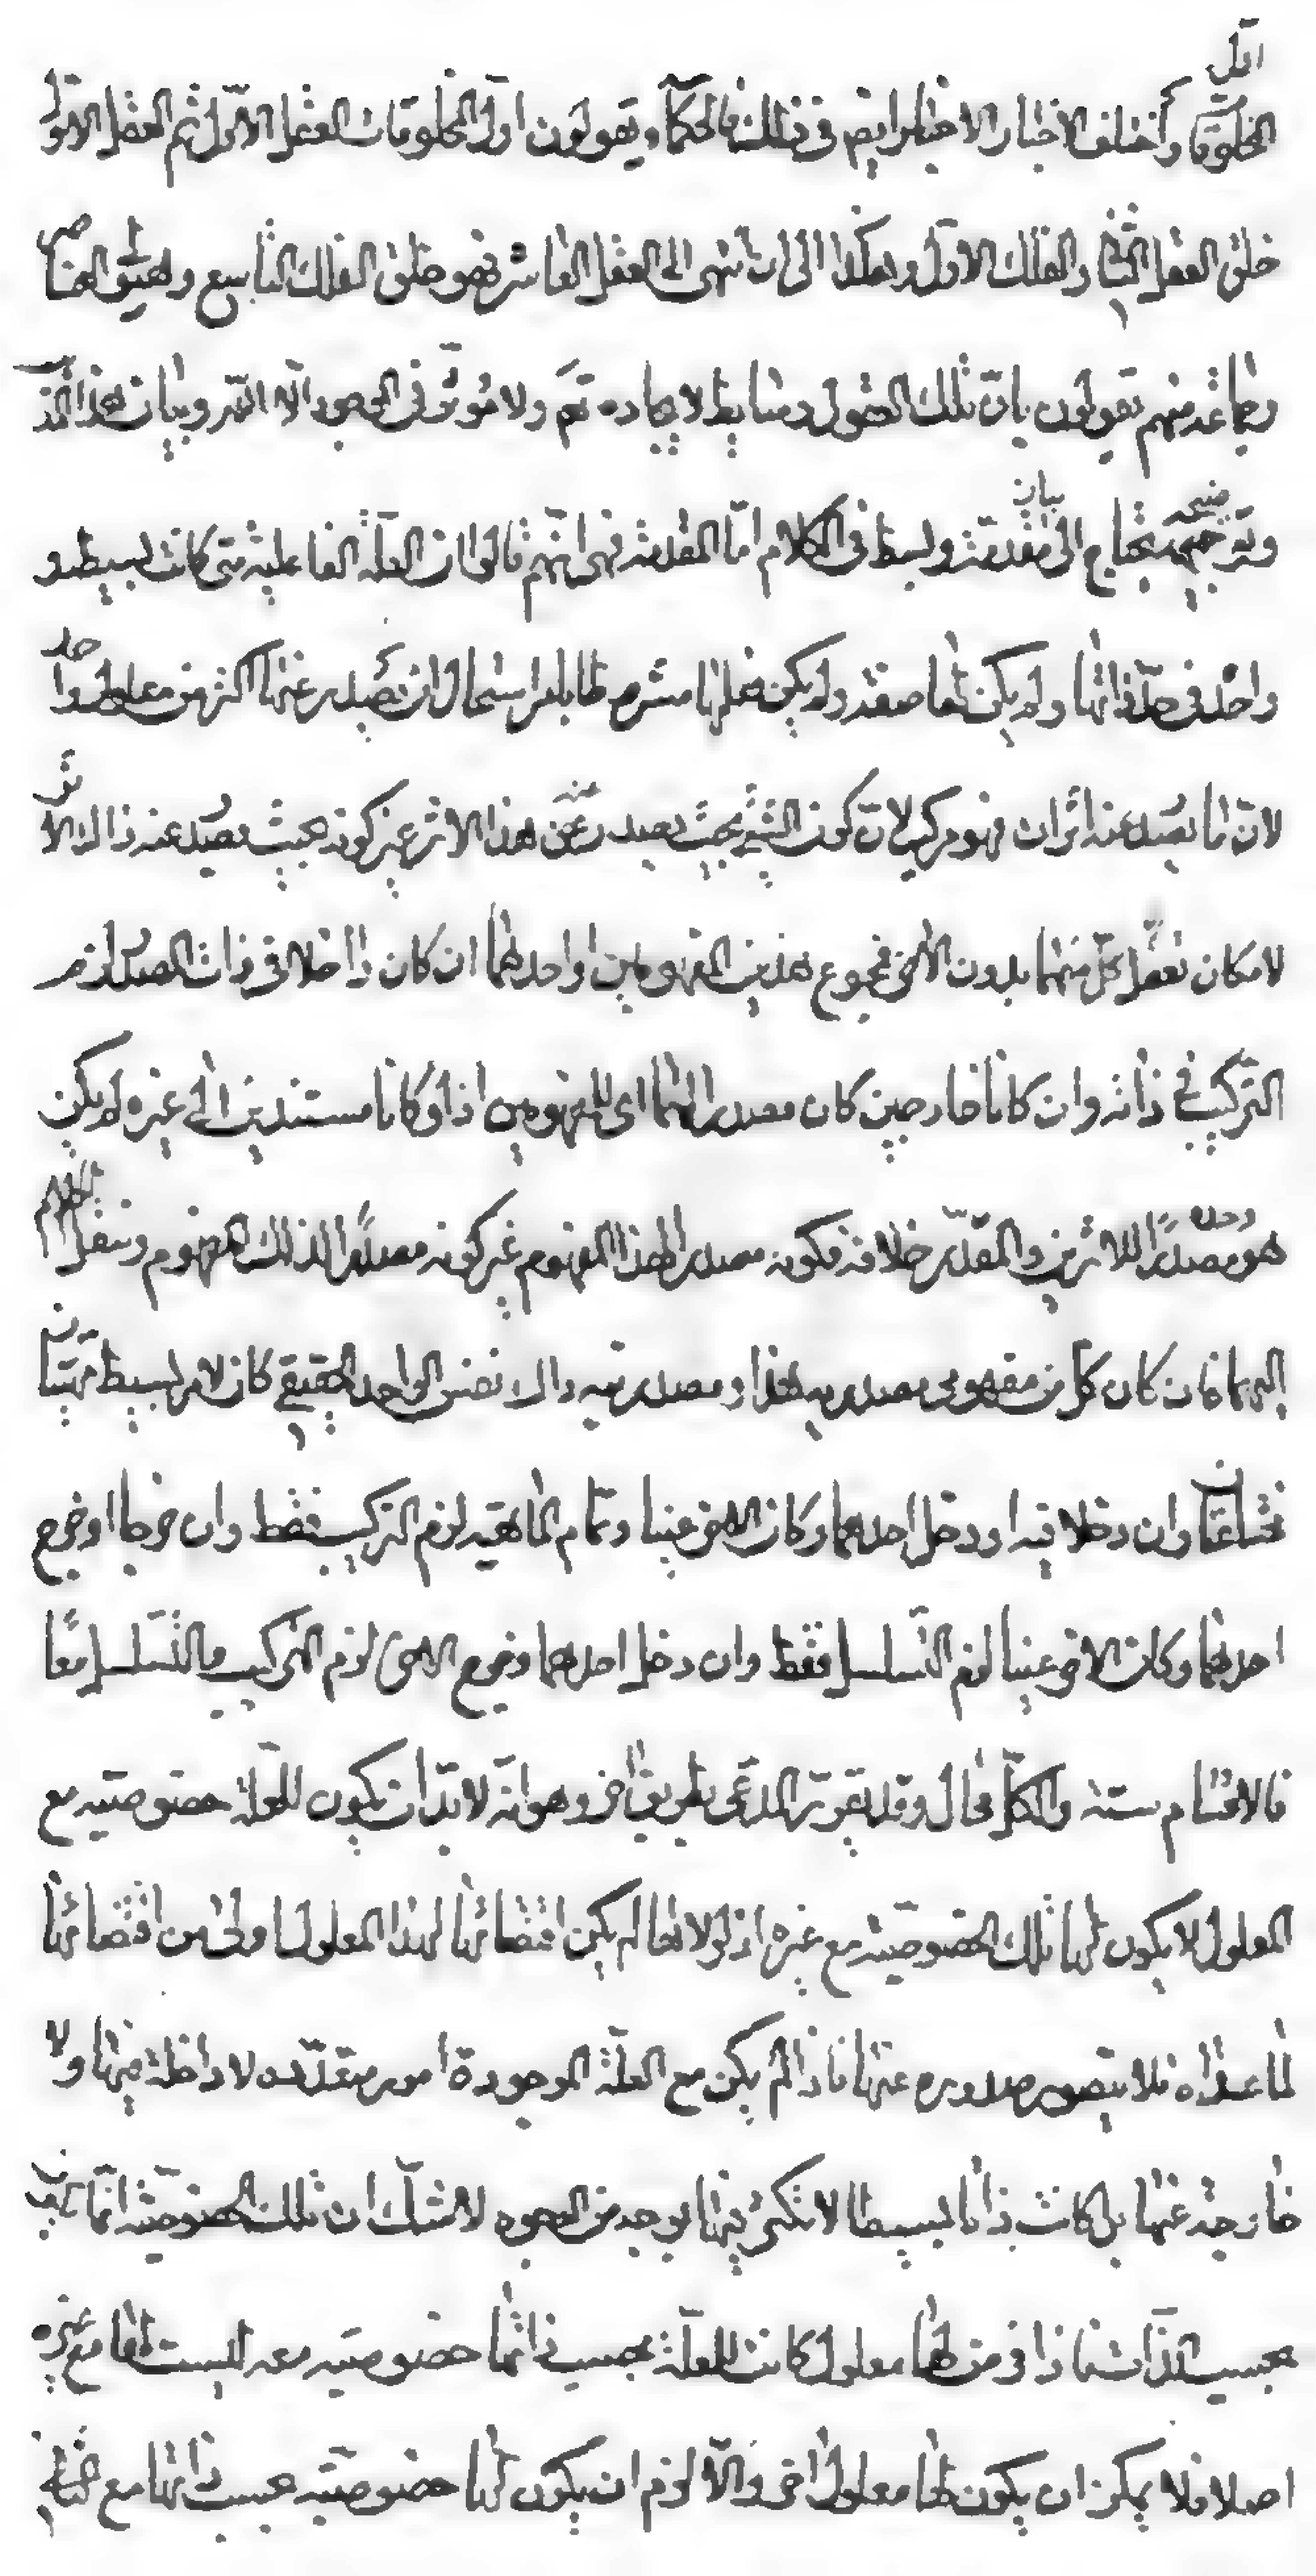 اول
المخلوقات واختلف الاخبار الاخبار ايضا في ذلك فالحكماء يقولون اول المخلوقات العقل الاول ثم العقل الاول
خلق العقل الثاني والفلك الاول وهكذا الى ان انتهى الى العقل العاشر فهو خلق الفلك التاسع وهيولى العناصر
وجماعة منهم يقولون بان تلك العقول وسايط لايجاده تعم ولا مؤثر في الوجود الا الله وبيان هذا المذهب
وتوضيحه يحتاج الى بيان مقدمة وبسط في الكلام اما المقدمة فهي انهم قالوا ان العلة الفاعلية متى كانت بسيطة و
واحدة في حد ذاتها ولم يكن لها صفة ولم يكن فعلها مشروطا بامر استحال ان يصدر عنها اكثر من معلول واحد
لان ما يصدر عنه اثران فهو مركب لان كون الشيء بحيث يصدر عنه هذا الاثر غير كونه بحيث يصدر عنه ذاك الاثر
لامكان تعقل كل منهما بدون الاخر فمجموع هذين المفهومين او احدهما ان كان داخلا في ذات المصدر لزم
التركيب في ذاته وان كانا خارجين كان مصدرا لهما اى للمفهومين اذ لو كانا مستندين الى غيره لم يكن
هو وحده مصدرا للاثرين والمقدر خلافه فكونه مصدرا لهذا المفهوم غير كونه مصدرا لذلك المفهوم وننقل الكلام
اليهما فان كان كل من مفهومى مصدرية هذا ومصدرية ذاك نفس الواحد الحقيقي كان لامر بسيط مهيتان
مختلفتان وان دخلا فيه او دخل احدهما وكان الاخر عينا وتمام الماهية لزم التركيب فقط وان خرجا او خرج
احدهما وكان الاخر عينا لزم التسلسل فقط وان دخل احدهما وخرج الاخر لزم التركيب والتسلسل معا
فالاقسام ستة والكل محال وقد يقرر المدعى بطريق اخر وهو انه لا بد ان يكون للعلة خصوصية مع
المعلول لا يكون لها تلك الخصوصية مع غيره اذ لولاها لم يكن اقتضائها لهذا المعلول اولى من اقتضائها
لما عداه فلا يتصور صدوره عنها فاذا لم يكن مع العلة الموجودة امور متعددة لا داخلة فيها ولا
خارجة عنها بل كانت ذاتا بسيطا لا تكثر فيها بوجه من الوجوه لا شك ان تلك الخصوصية انما تكون
بحسب الذات فاذا فرض لها معلول كانت للعلة بحسب ذاتها خصوصية معه ليست لها مع غيره
اصلا فلا يمكن ان يكون لها معلول اخر والا لزم ان يكون لها خصوصية بحسب ذاتها مع الثاني